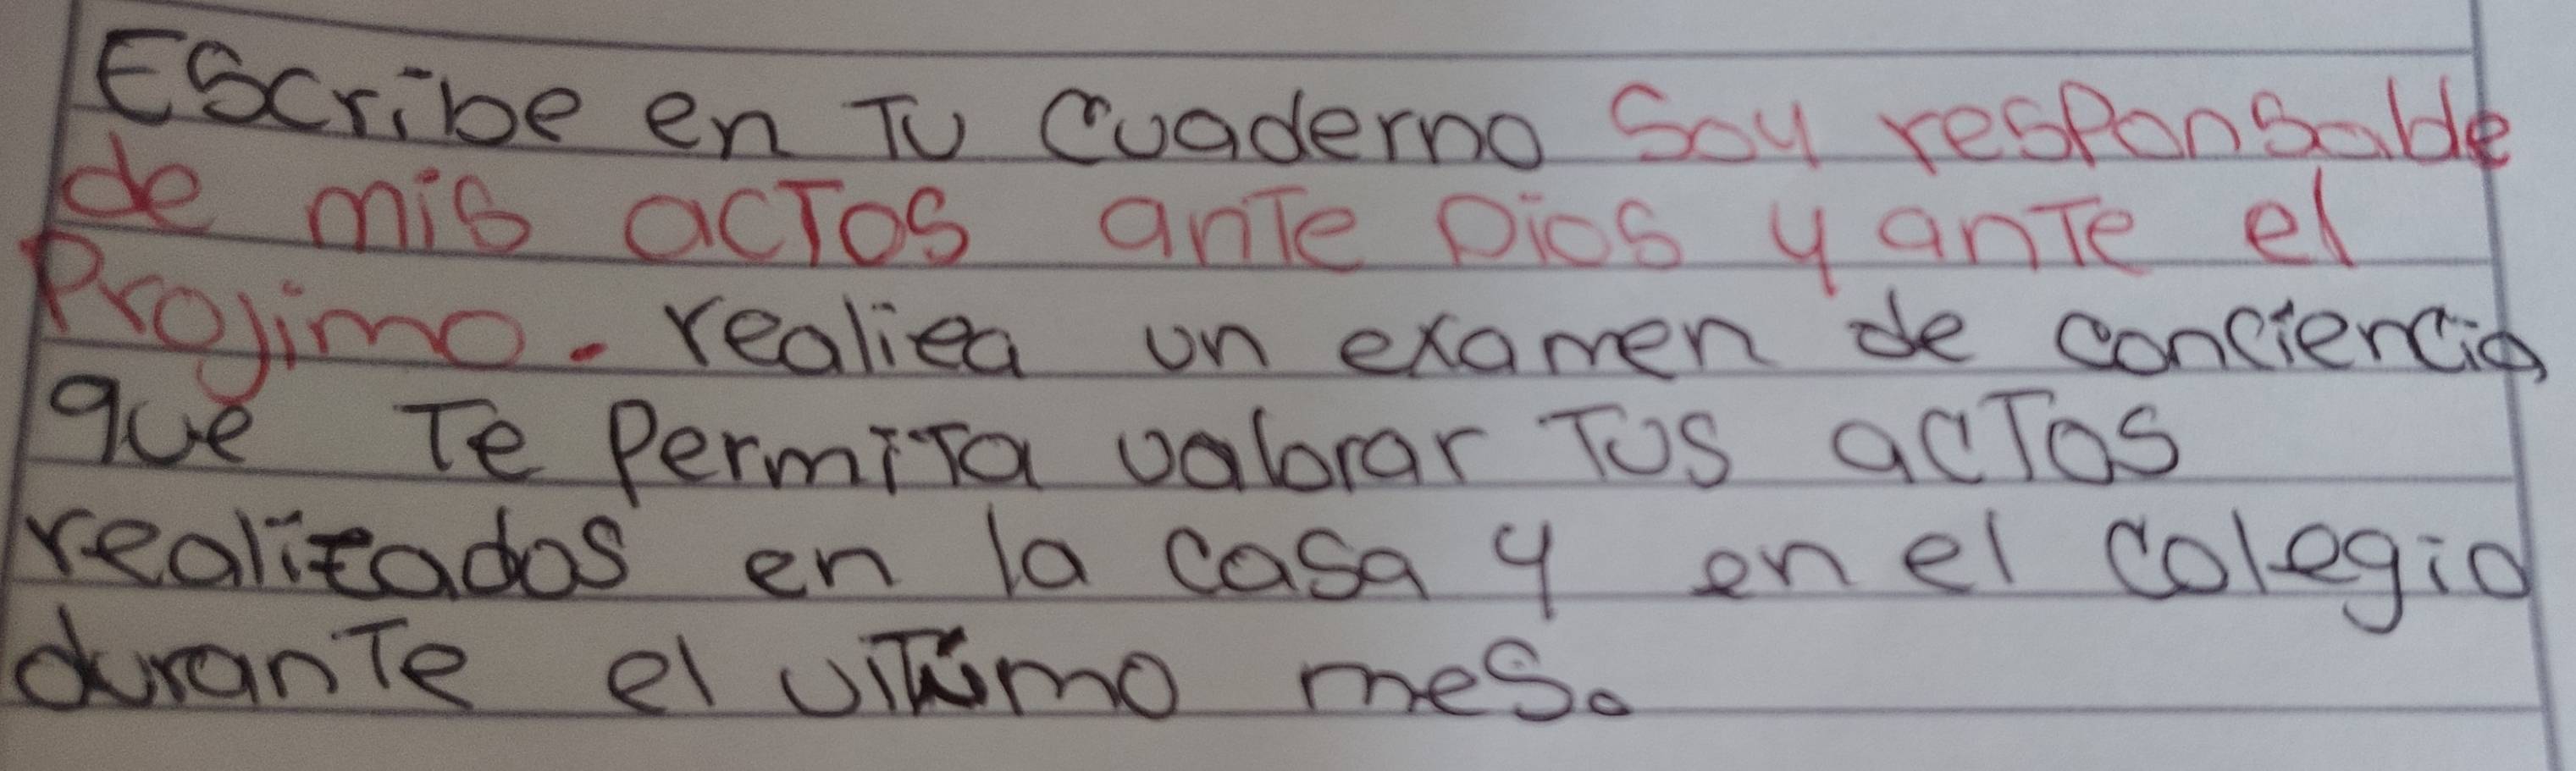 Escribe en Tu cuaderno Soy responsable
de mis actos ante Dios y ante el
Projimo. realiza un examen de conciencia
que Te Permita valorar Tus actos
realizados en la casa y en el colegio
durante el ultimo mes.